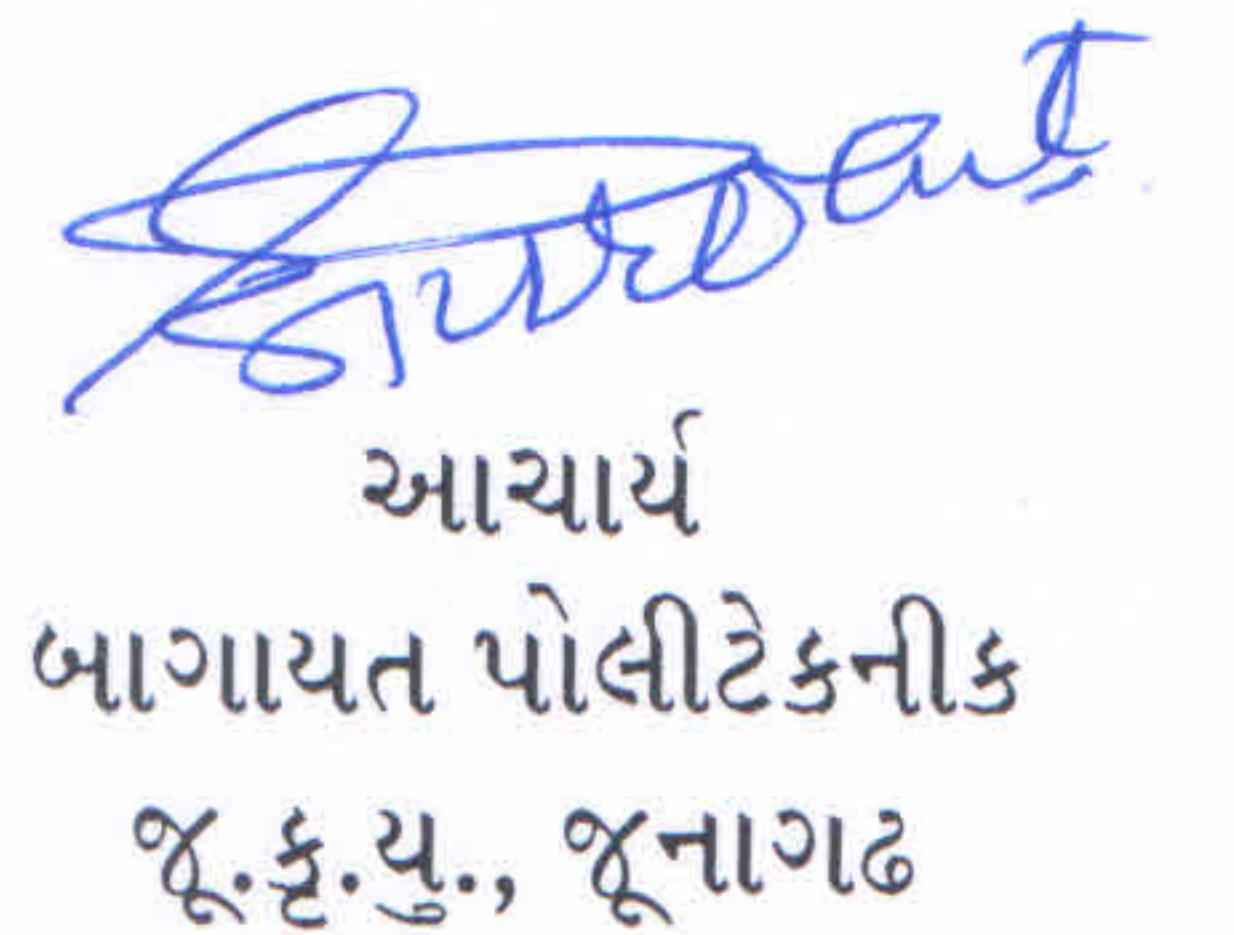 આચાર્ય
બાગાયત પોલીટેકનીક
જૂ.કૃ.યુ., જૂનાગઢ